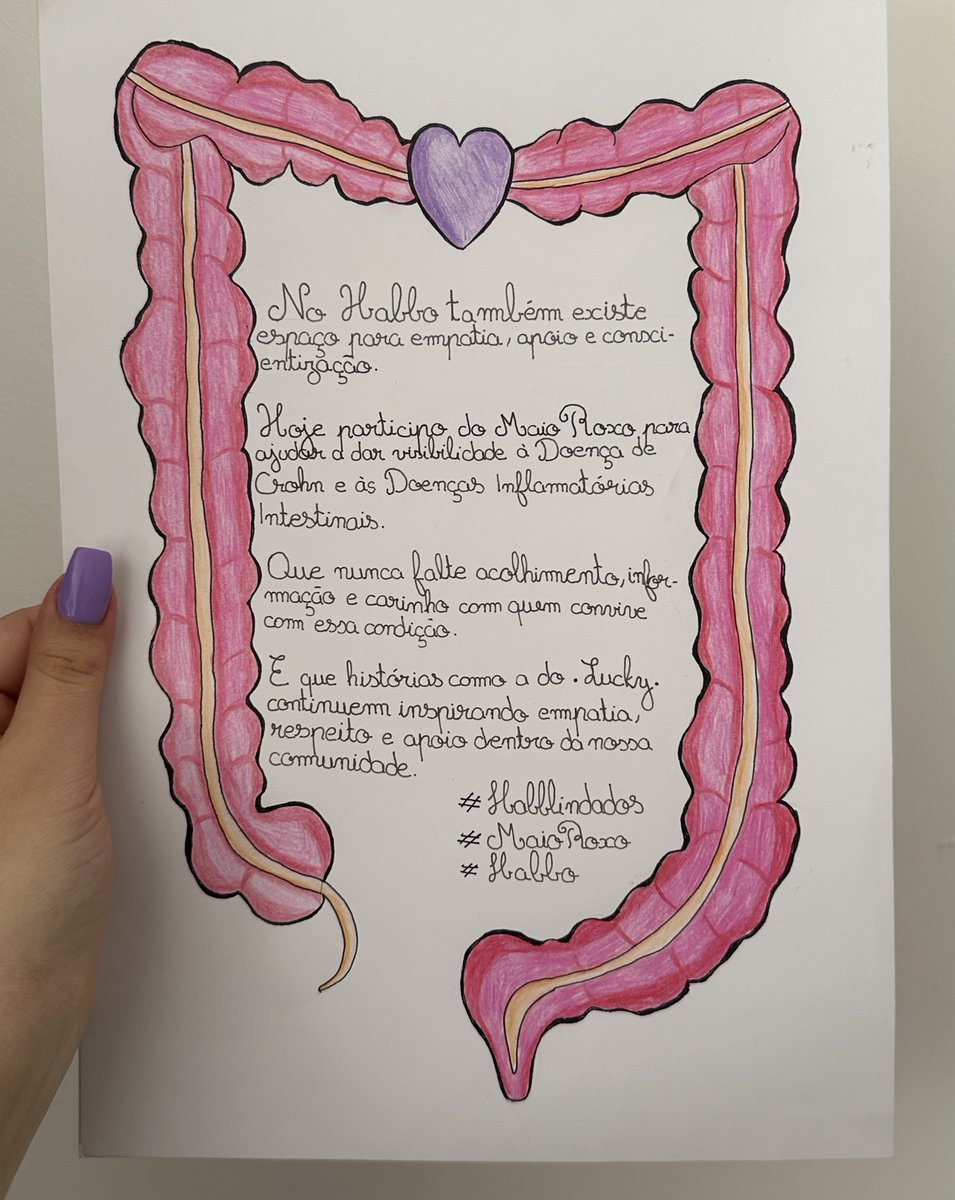 No Habbo também existe
espaço para empatia, apoio e consci-
entização.
Hoje participo do Maio Roxo para
ajudar a dar visibilidade à Doença de
Crohn e às Doenças Inflamatórias
Intestinais.
Que nunca falte acolhimento, infor-
mação e carinho com quem convive
com essa condição.
E que histórias como a do .Lucky.
continuem inspirando empatia,
respeito e apoio dentro da nossa
comunidade.
# Habblindados
# MaioRoxo
# Habbo